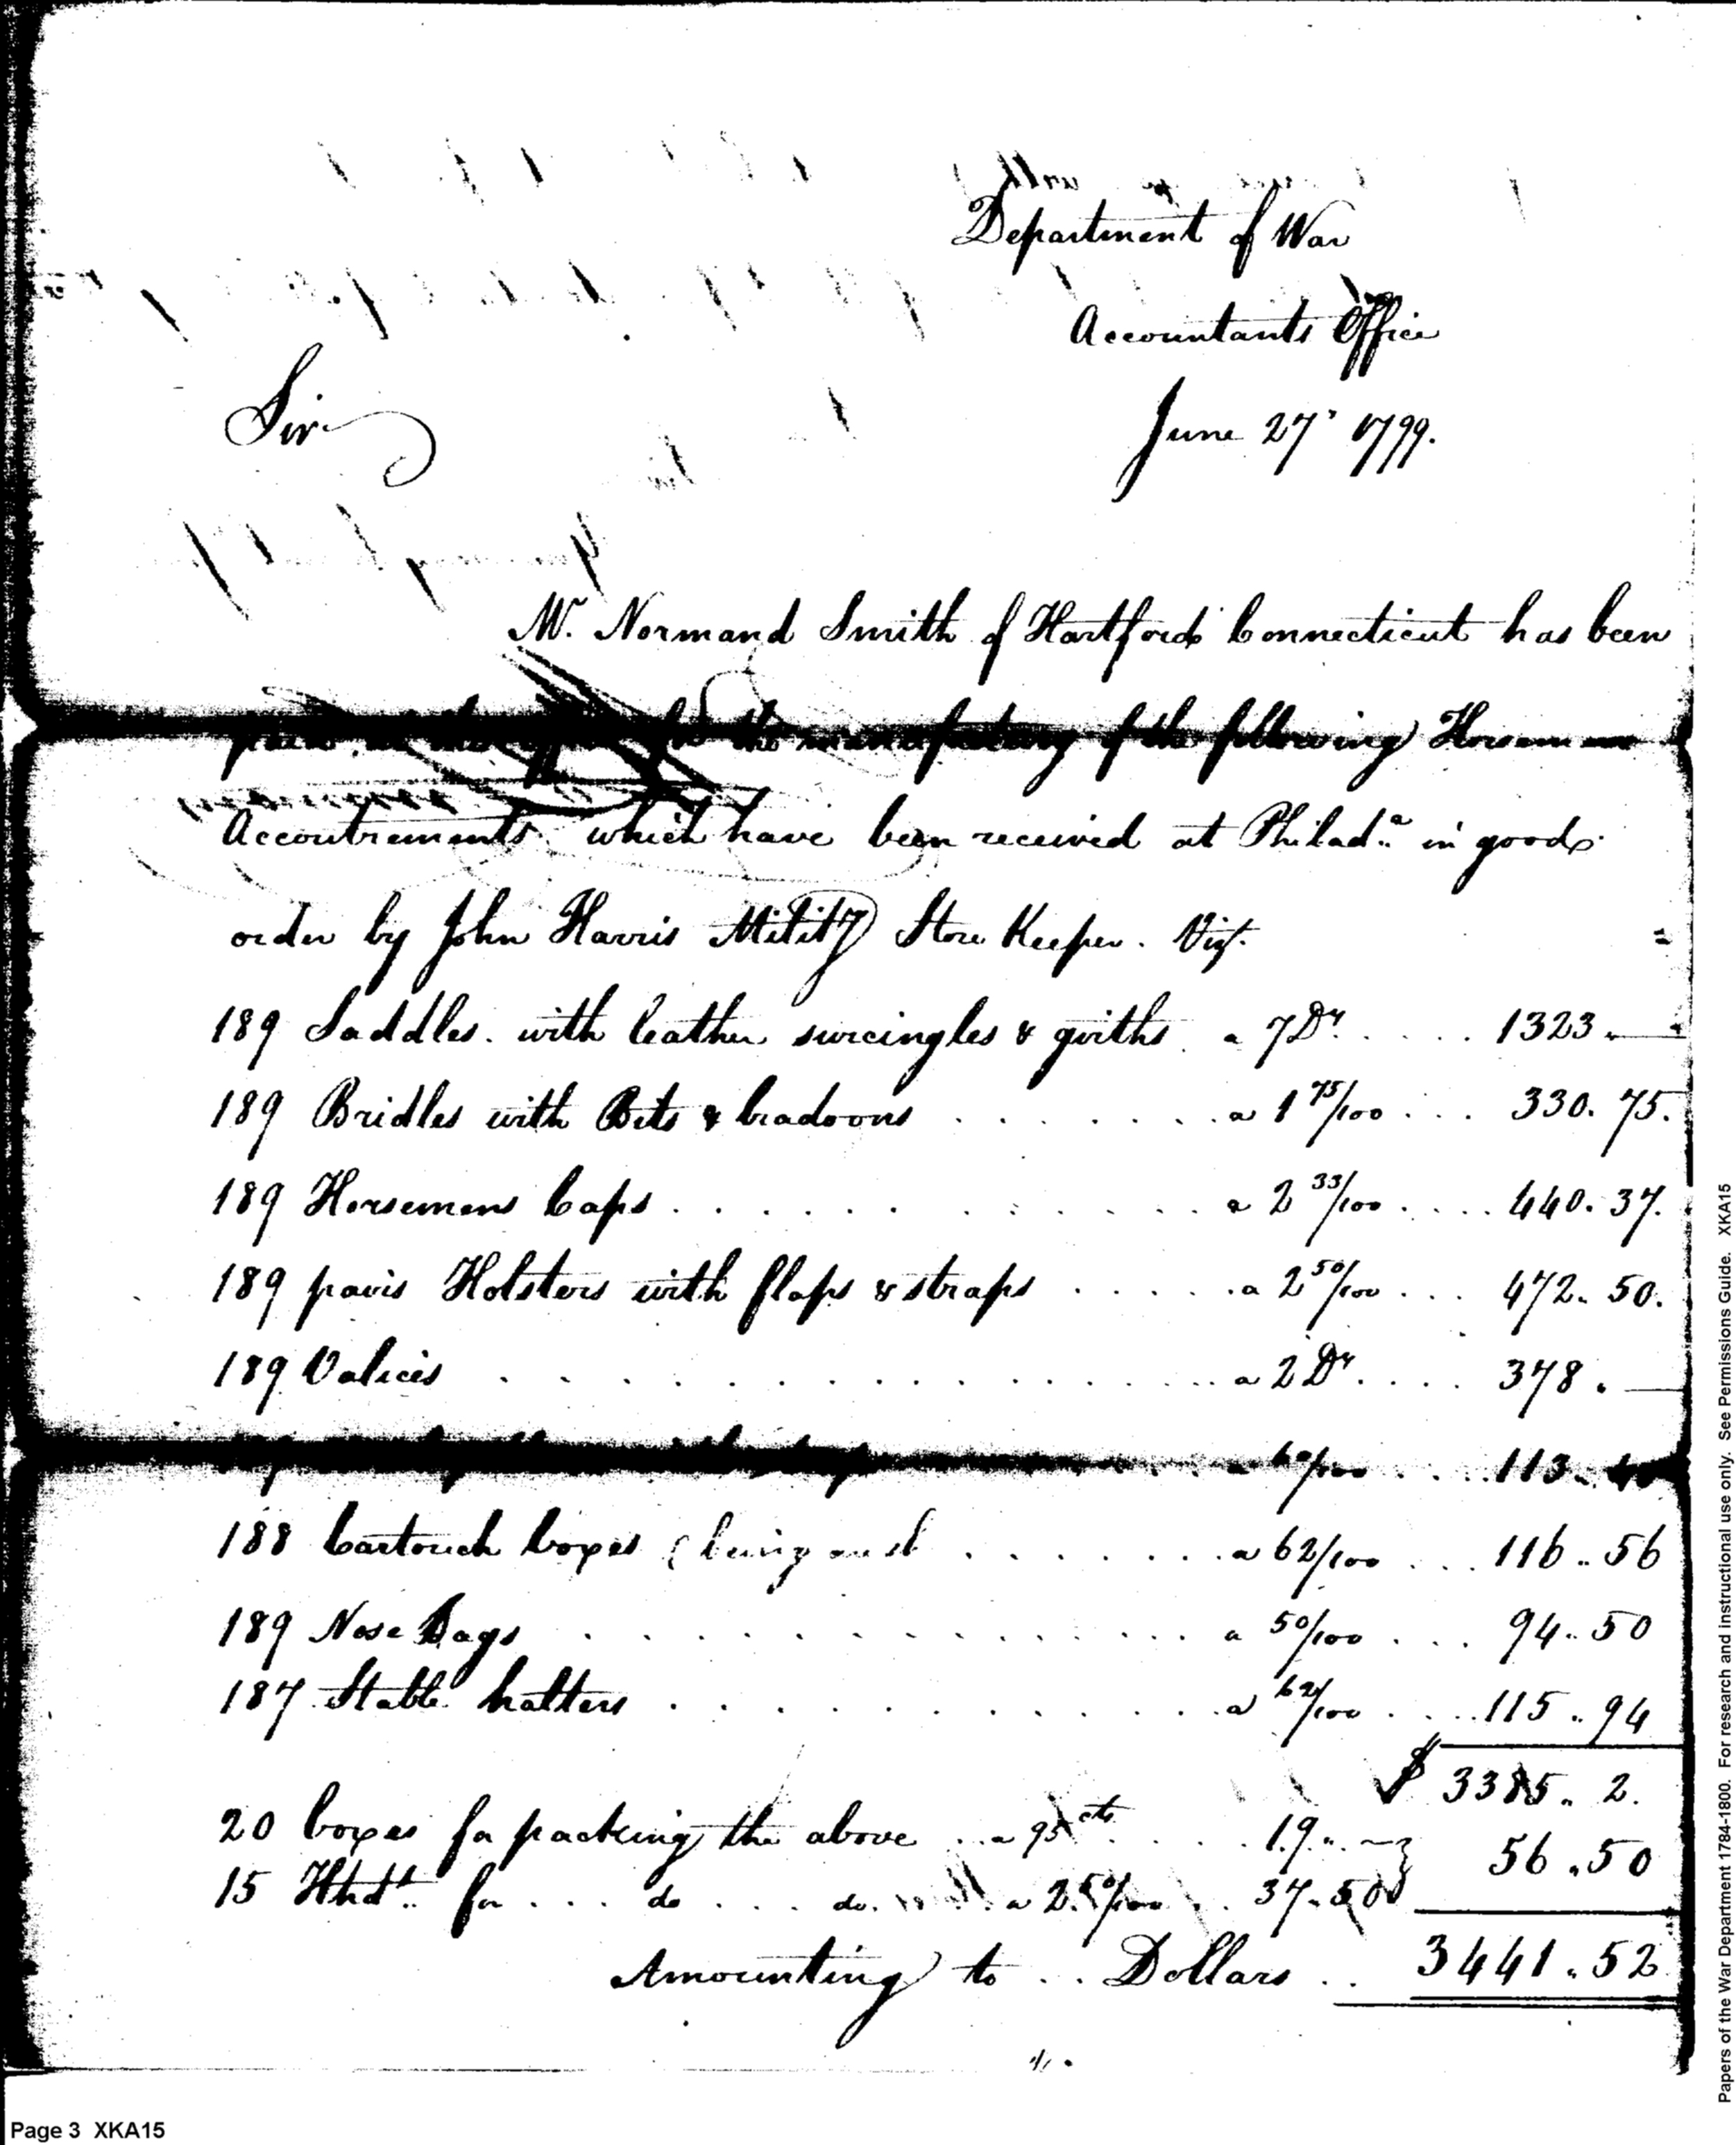 Department of War
Accountants Office
June 27' 1799.
Sir
Mr. Normand Smith of Hartford Connecticut has been
paid at this office for the manufactory of the following Horsemens
Accoutrements which have been received at Philada. in good
order by John Harris Mility Store Keeper. Vizt.
189 Saddles. with leather surcingles & girths. a 7 Drs. . . . . 1323. —
189 Bridles with Bits & bradoons . . . . . . . a 1 75/100 . . . 330. 75.
189 Horsemens Caps . . . . . . . . . . . a 2 33/100 . . . . 440. 37.
189 pairs Holsters with flaps & straps . . . . . a 2 50/100 . . . 472. 50.
189 Valices . . . . . . . . . . . . . . . a 2 Drs. . . . . 378. —
a 60/100 . . . . 113. 40
188 Cartouch boxes . . . . . . . a 62/100 . . . 116. 56
189 Nose Bags . . . . . . . . . . . . . a 50/100 . . . 94. 50
187 Stable halters . . . . . . . . . . . a 62/100 . . . . 115. 94
$ 3385. 2.
20 boxes for packing the above . . a 95 cts . . . . 19. —
56. 50
15 Hhds. for . . . do . . . do. a 2. 50/100 . . 37. 50
Amounting to . . Dollars . . 3441. 52
Page 3 XKA15
Papers of the War Department 1784-1800. For research and instructional use only. See Permissions Guide. XKA15